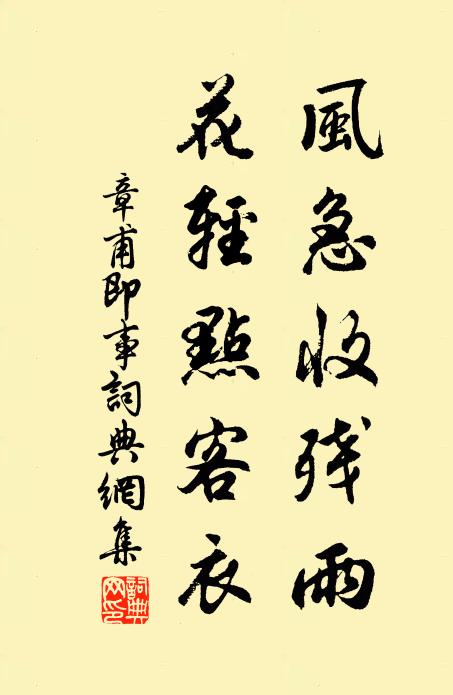 風急收残雨
花輕點客衣
章甫即事詞典網集
詞典網印